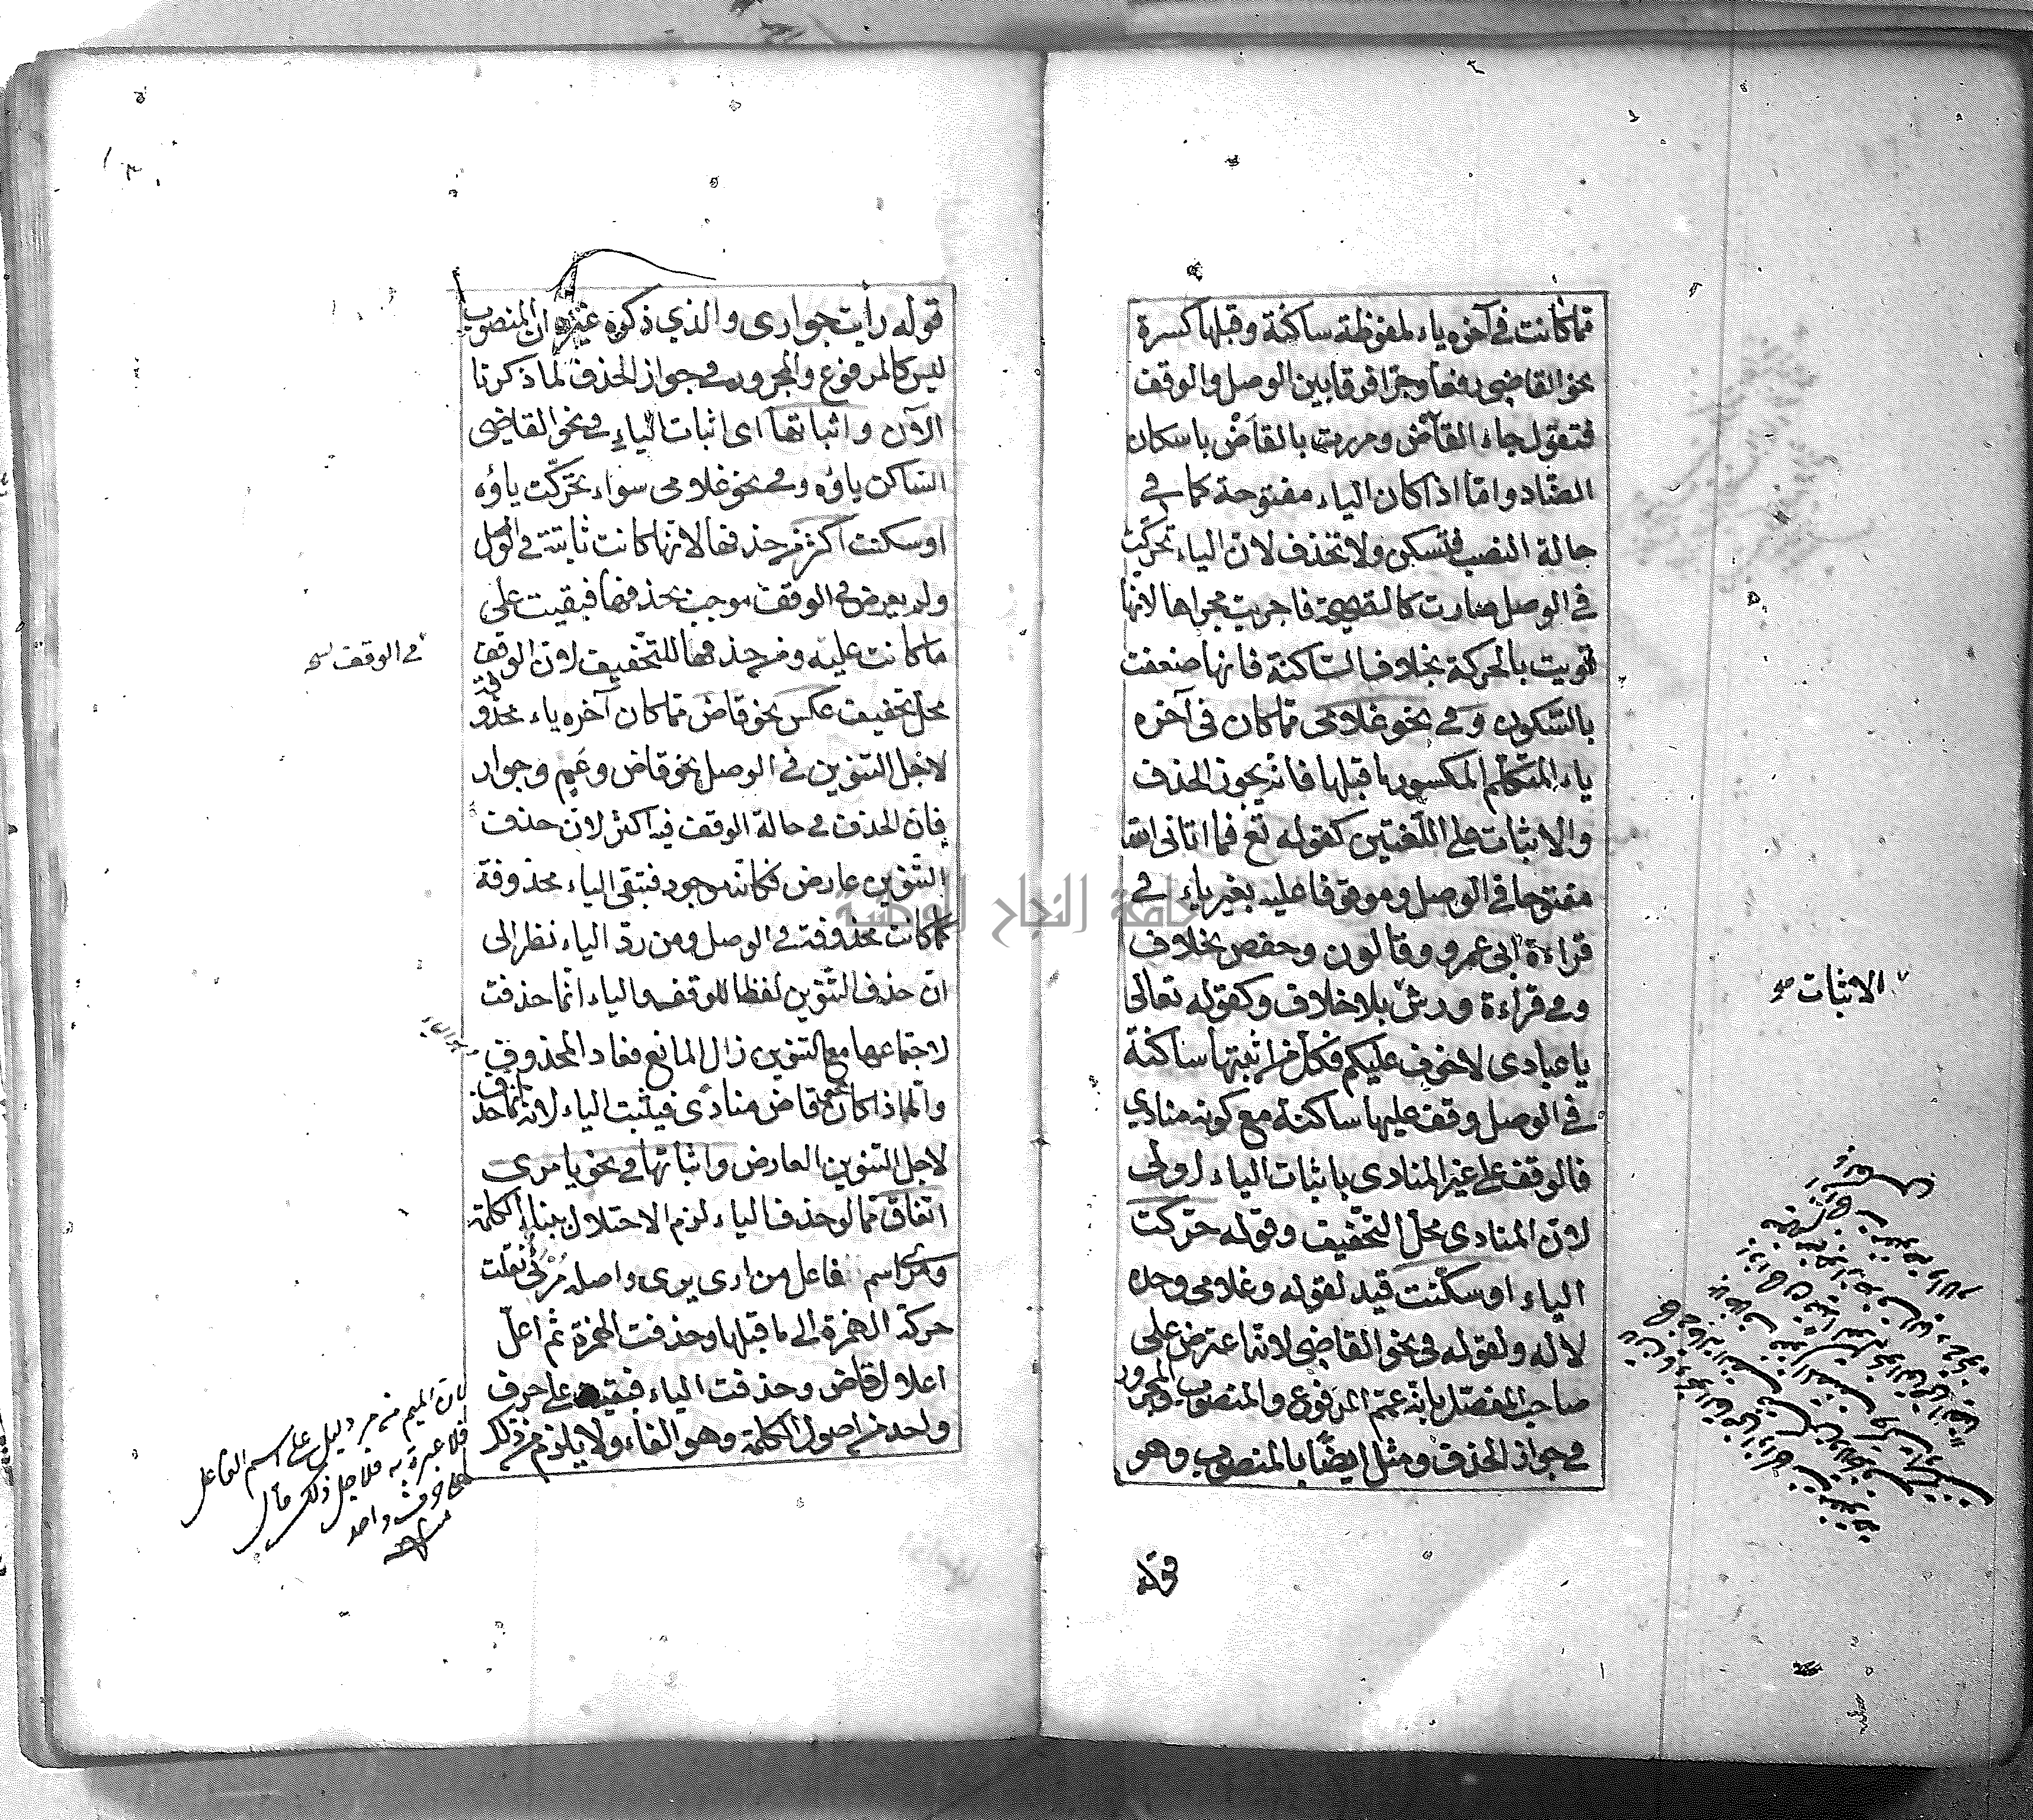 مما كانت في آخره ياء ملفوظة ساكنة وقبلها كسرة
نحو القاضي رفعا وجرا فرقا بين الوصل والوقف
فتقول جاء القاضْ ومررت بالقاضْ باسكان
الضّاد وامّا اذا كان الياء مفتوحة كما في
حالة النصب فتسكن ولا تحذف لان الياء تحركت
في الوصل صارت كالصحيحة فاجريت مجراها لانها
قويت بالحركة بخلاف السّاكنة فانها ضعفت
بالسّكون وفي نحو غلامي مما كان في آخره
ياء المتكلّم المكسور ما قبلها فانه يجوز الحذف
والاثبات على اللّغتين كقوله تع فما اتاني الله
مفتوحا في الوصل وموقوفا عليه بغير ياء في
قراءة ابي عمرو وقالون وحفص بخلاف
وفي قراءة ورش بلا خلاف وكقوله تعالى
يا عبادي لا خوف عليكم فكل من اثبتها ساكنة
في الوصل وقف عليها ساكنة مع كونه منادى
فالوقف على غير المنادى باثبات الياء اولى
لان المنادى محلّ التخّفيف وقوله حرّكت
الياء او سكّنت قيد لقوله وغلامي وحده
لا له ولقوله في نحو القاضي لانّه اعترض على
صاحب المفصّل بانّه عمّم المرفوع والمنصوب والمجرور
في جواز الحذف ومثل ايضًا بالمنصوب وهو
قوله
الاثبات صح
قوله رأيت جواري والذي ذكره غيره ان المنصوب
ليس كالمرفوع والمجرور في جواز الحذف لما ذكرنا
الآن واثباتها اي اثبات الياء في نحو القاضي
السّاكن ياؤه وفي نحو غلامي سواء تحرّكت ياؤه
او سكنت اكثر من حذفها لانها كانت ثابتة في الوصل
ولم يعرض في الوقف موجب بحذفها فبقيت على
ما كانت عليه ومن حذفها للتخفيف لان الوقف
محل تخفيف عكس نحو قاض مما كان آخره ياء محذوفة
لاجل التنوين في الوصل نحو قاض وعمٍ وجوار
فان الحذف في حالة الوقف فيه اكثر لانّ حذف
التنوين عارض فكانه موجود فتبقى الياء محذوفة
كما كانت محذوفة في الوصل ومن ردّ الياء نظر الى
ان حذف التنّوين لفظا للوقف والياء انّما حذفت
لاجتماعها مع التنوين زال المانع فعاد المحذوف
وامّا اذا كان نحو قاض منادى فيثبت الياء لانه انما حذف
لاجل التنوين العارض واثباتها في نحو يا مري
اتفاق مما لو حذف الياء لزم الاختلال ببناء الكلمة
ومري اسم فاعل من ارى يري واصله مُرْئي نقلت
حركة الهمزة الى ما قبلها وحذفت الهمزة ثم اعلّ
اعلال قاض وحذفت الياء فبقيت على حرف
واحد من اصول الكلمة وهو الفاء ولا يلزم من ذلك
في الوقف صح
لان الميم في مر دليل على اسم الفاعل
فلا عبرة به فلاجل ذلك قال
على حرف واحد
جامعة النجاح الوطنية